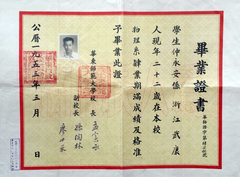 畢業證書
學生仲永安係浙江武康
人現年二十二歲在本校
物理系肄業期滿成績及格准
予畢業此證
華東師範大學校長 孟憲承
副校長 孫陶林
廖世承
公曆一九五三年三月 日